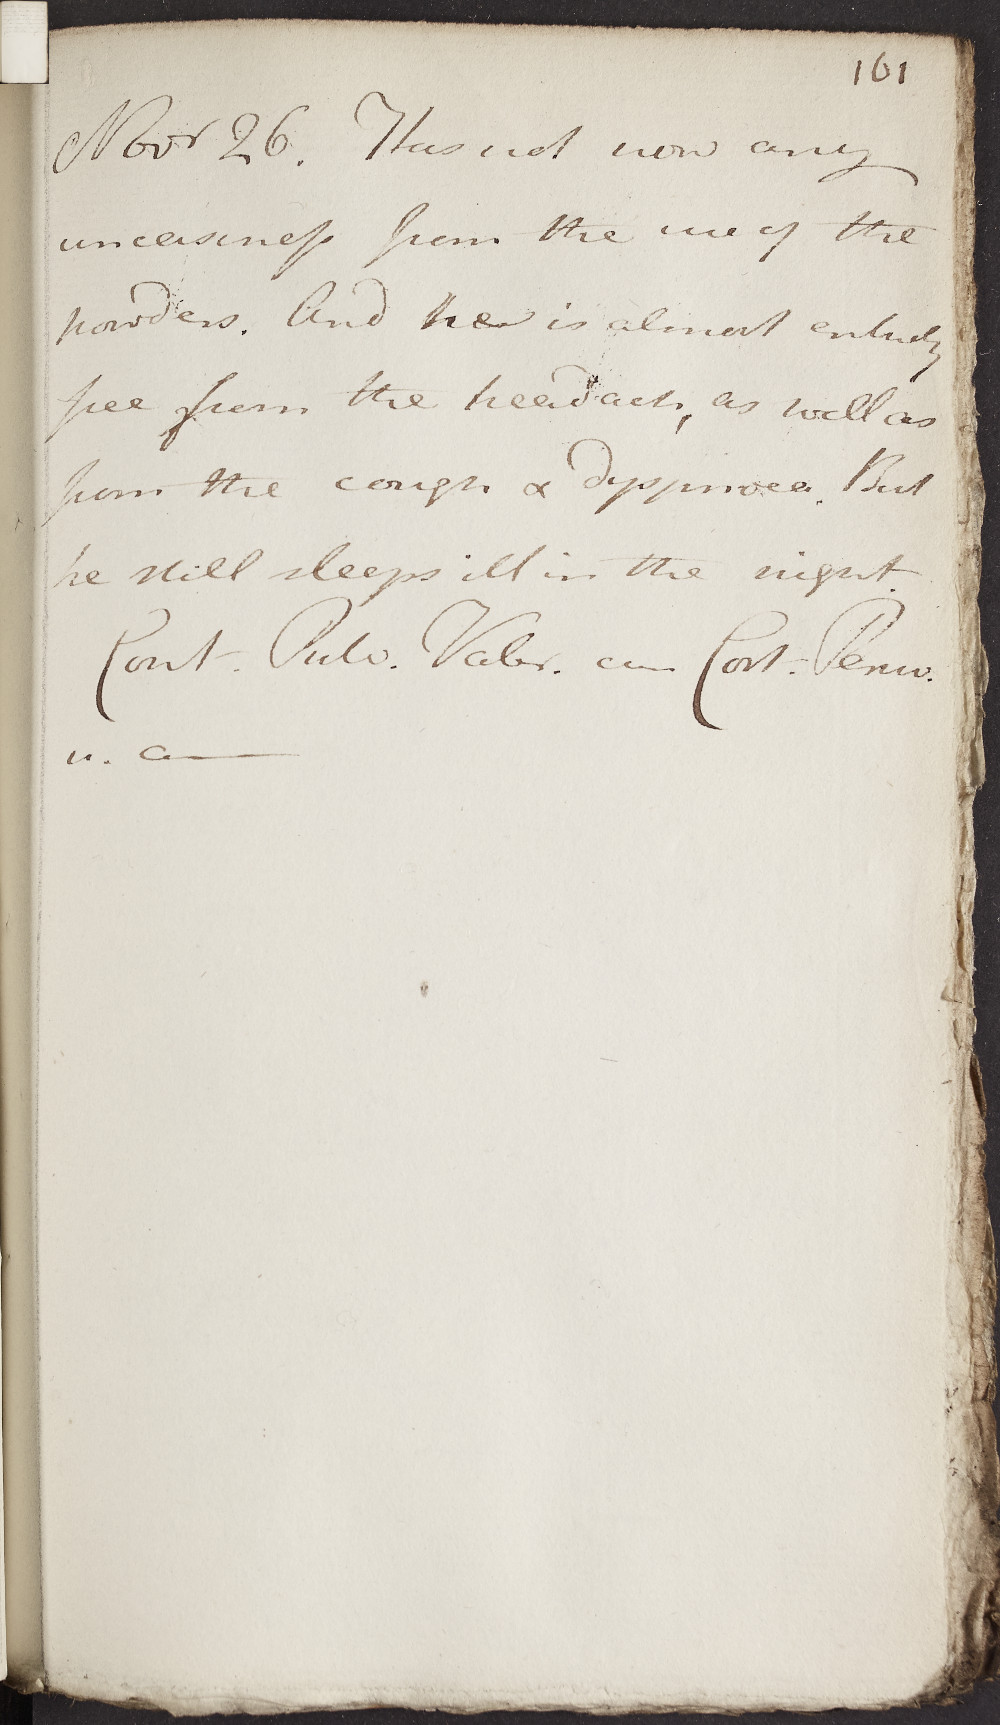 161
Novr 26. Has not now any
uneasiness from the use of the
powders. And he is almost entirely
free from the headach, as well as
from the cough & dyspnoea. But
he still sleeps ill in the night.
Cont. Pulv. Valer. cum Cort. Peruv.
u. a